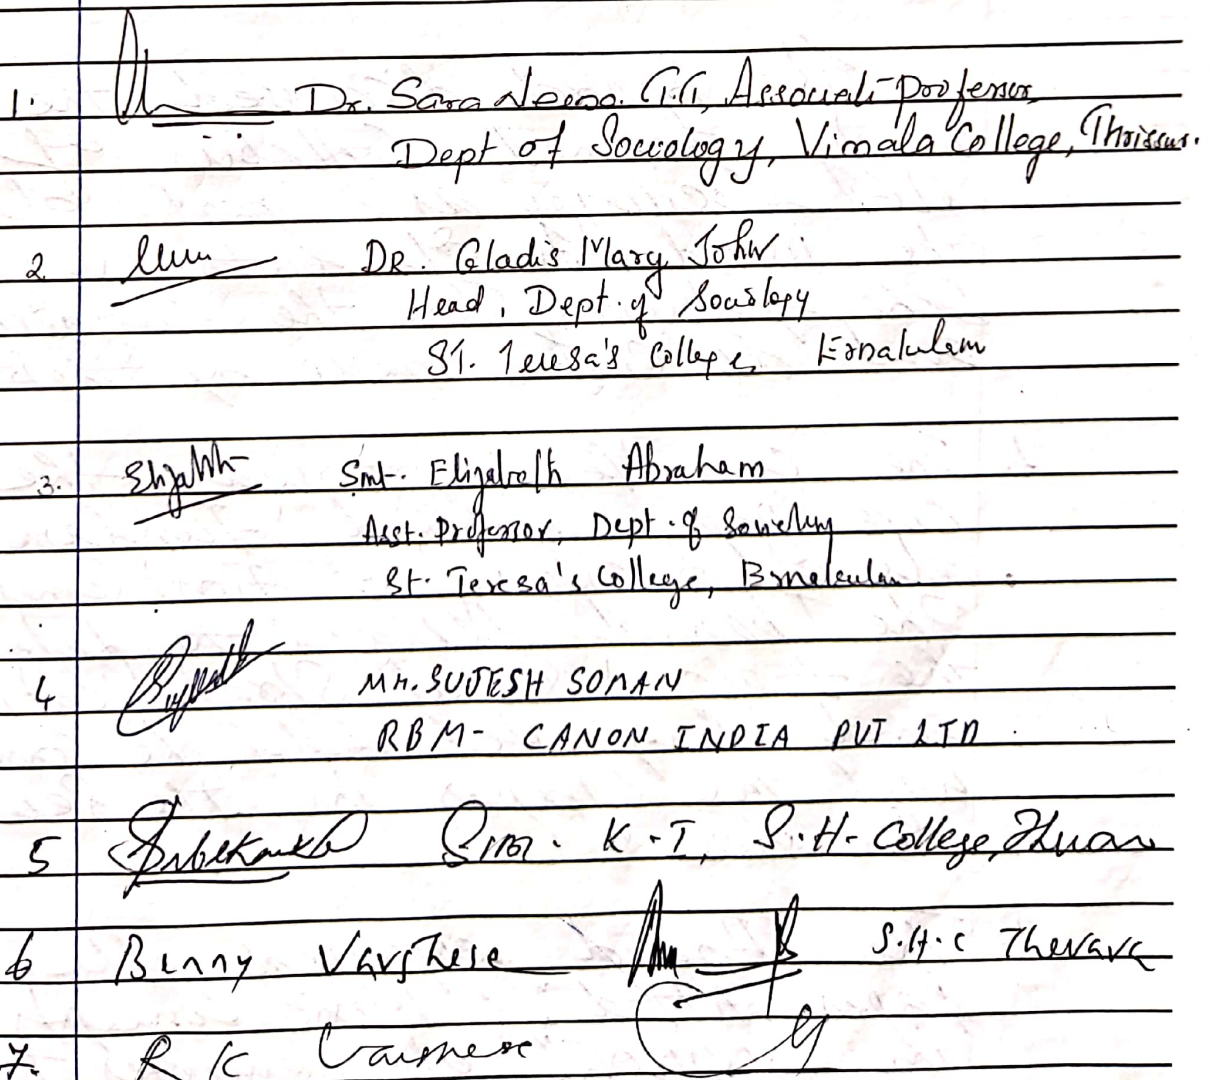 1. Dr. Sara Neena. T.T, Associate Professor,
Dept of Sociology, Vimala College, Thrissur.
2 DR. Gladis Mary John
Head, Dept. of Sociology
ST. Teresa's College, Ernakulam
3. Elizabeth Smt. Elizabeth Abraham
Asst. Professor, Dept. of Sociology
St. Teresa's College, Ernakulam
4 MR. SUJESH SOMAN
RBM- CANON INDIA PVT LTD
5 K.T, S.H. College, Thevara
6 Benny Varghese S.H.C Thevara
7. R K Varghese